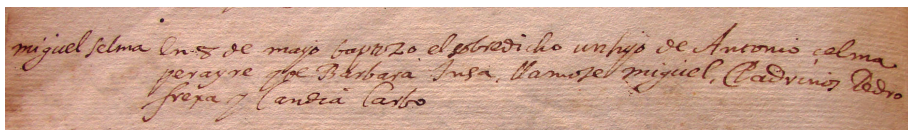 miguel selma En 8 de mayo baptizo el sobredicho un hijo de Antonio çelma
perayre y de Barbara Insa, llamose miguel, Padrinos Pedro
frexa y Candia Carbo